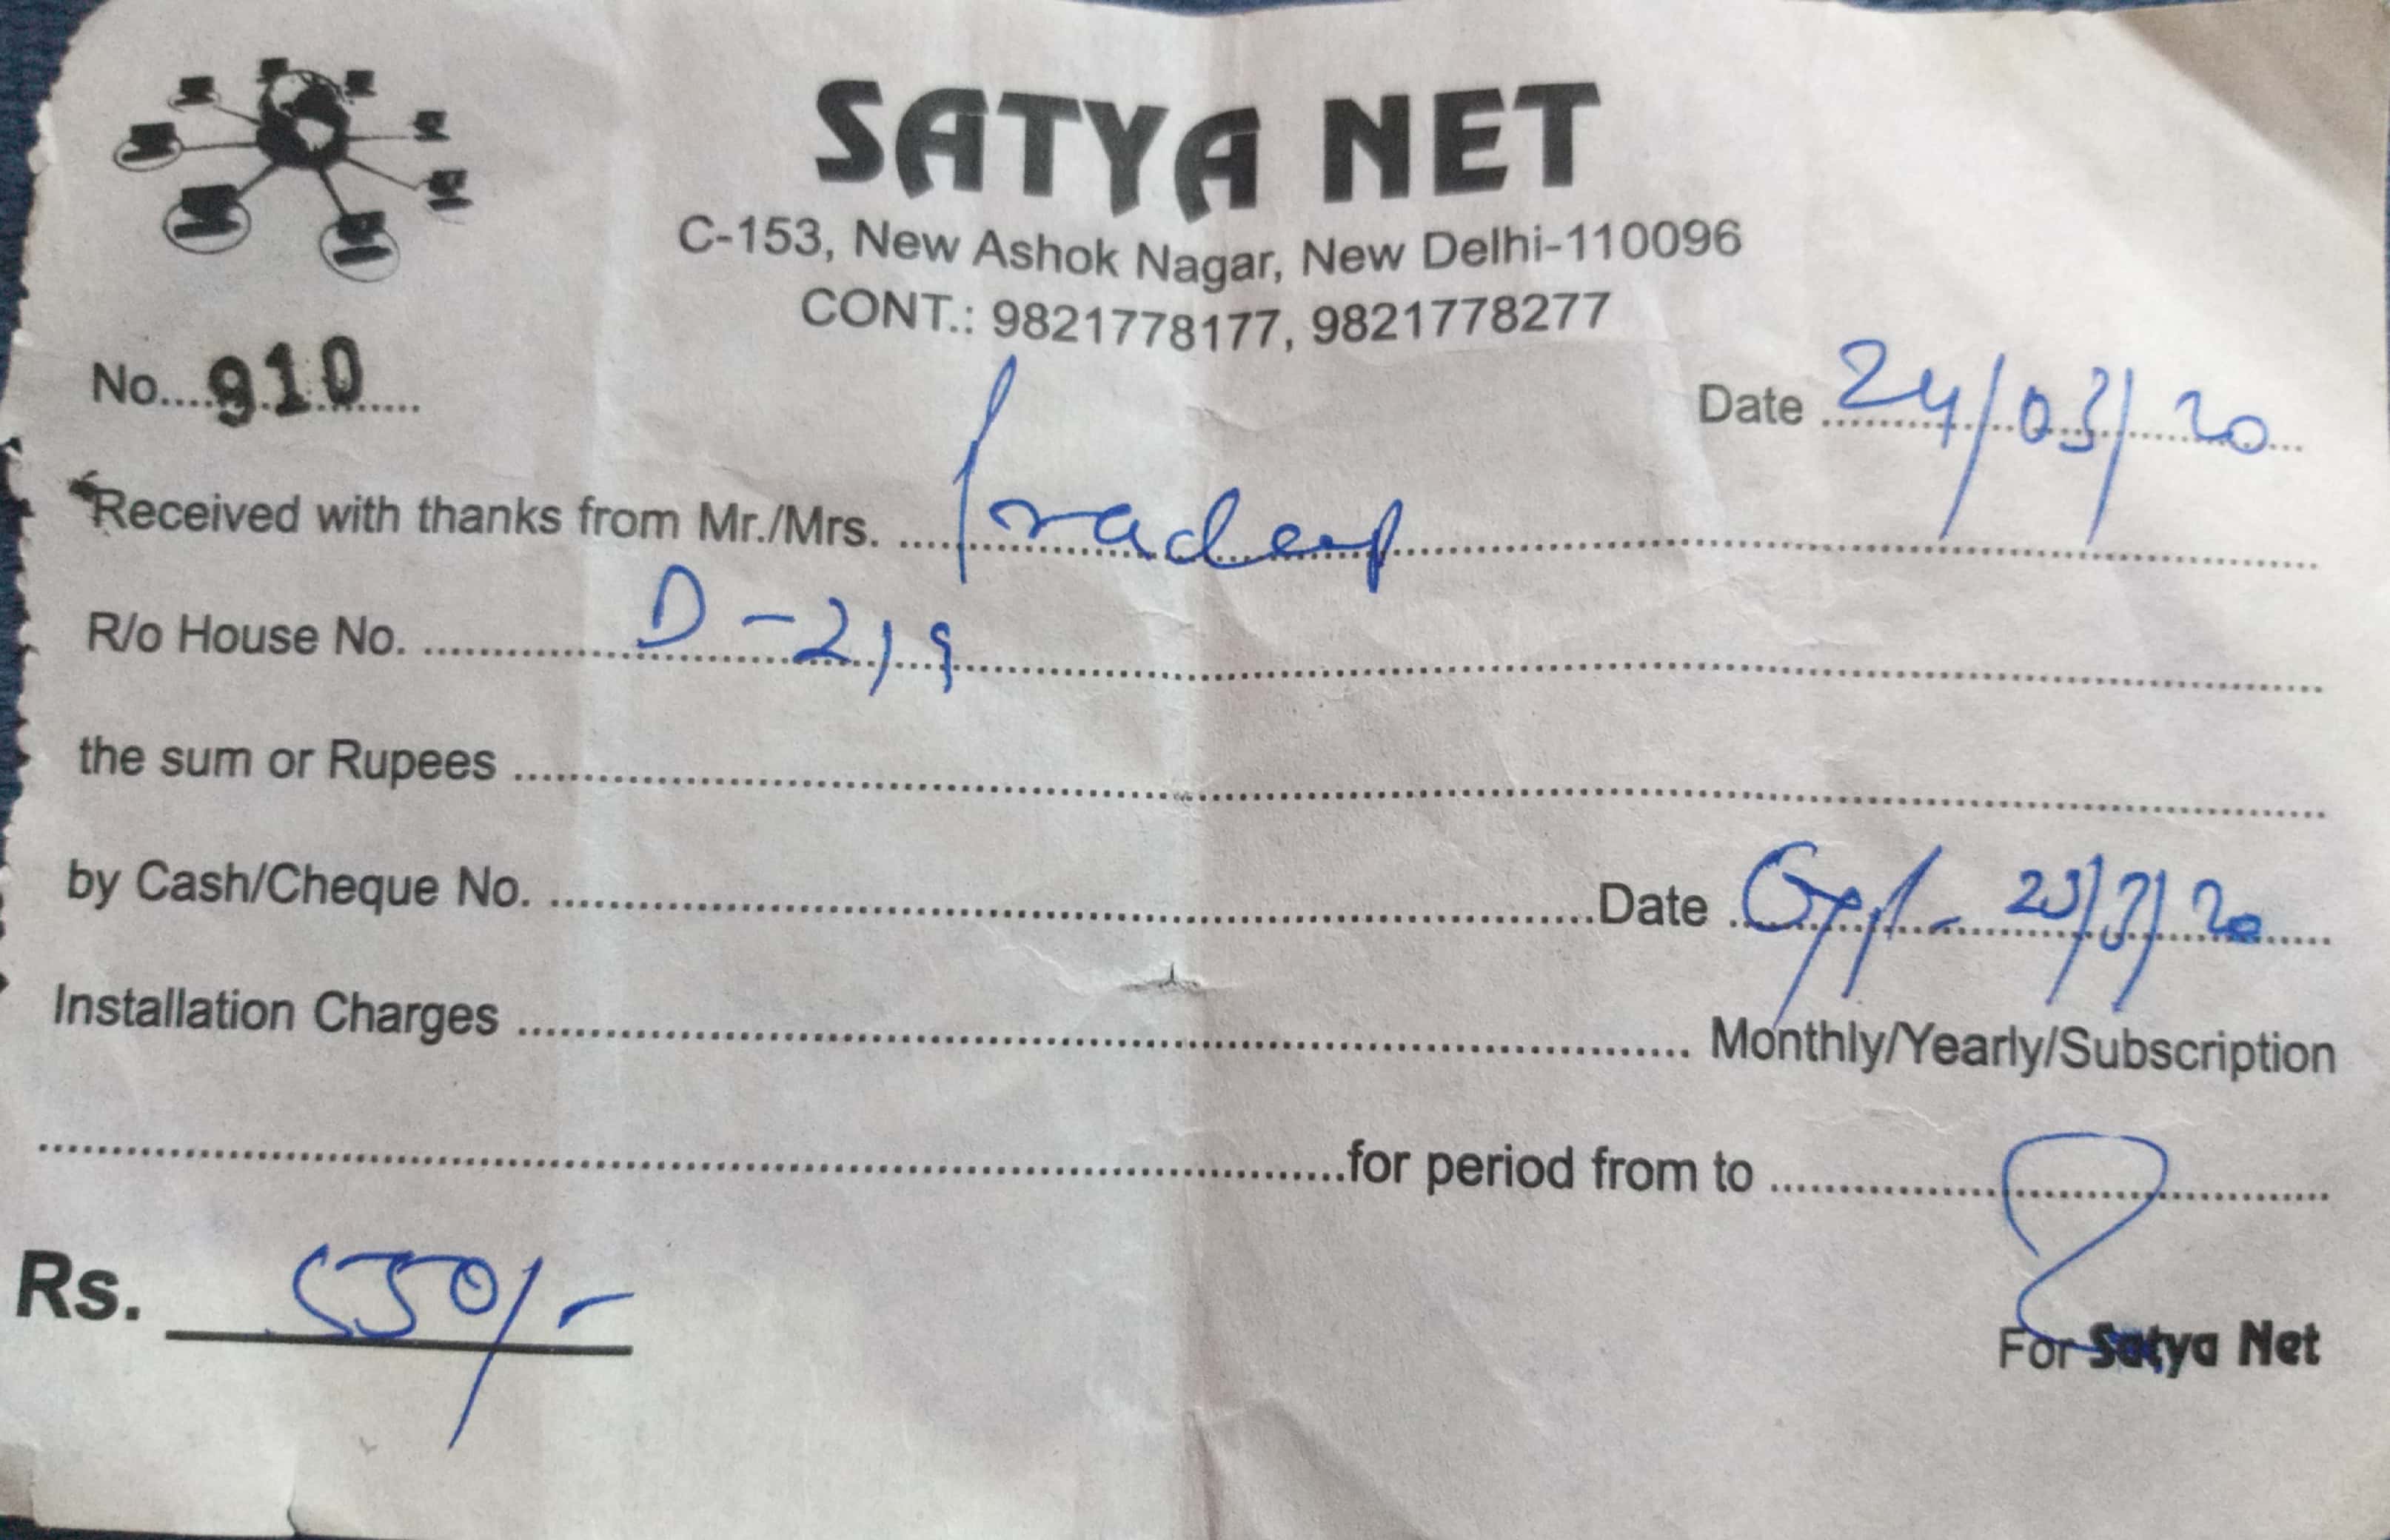 SATYA NET
C-153, New Ashok Nagar, New Delhi-110096
CONT.: 9821778177, 9821778277
No....910.... Date 24/03/20
Received with thanks from Mr./Mrs. Pradeep
R/o House No. D-219
the sum or Rupees
by Cash/Cheque No. Date
Installation Charges Monthly/Yearly/Subscription
for period from to
Rs. 550/-
For Satya Net